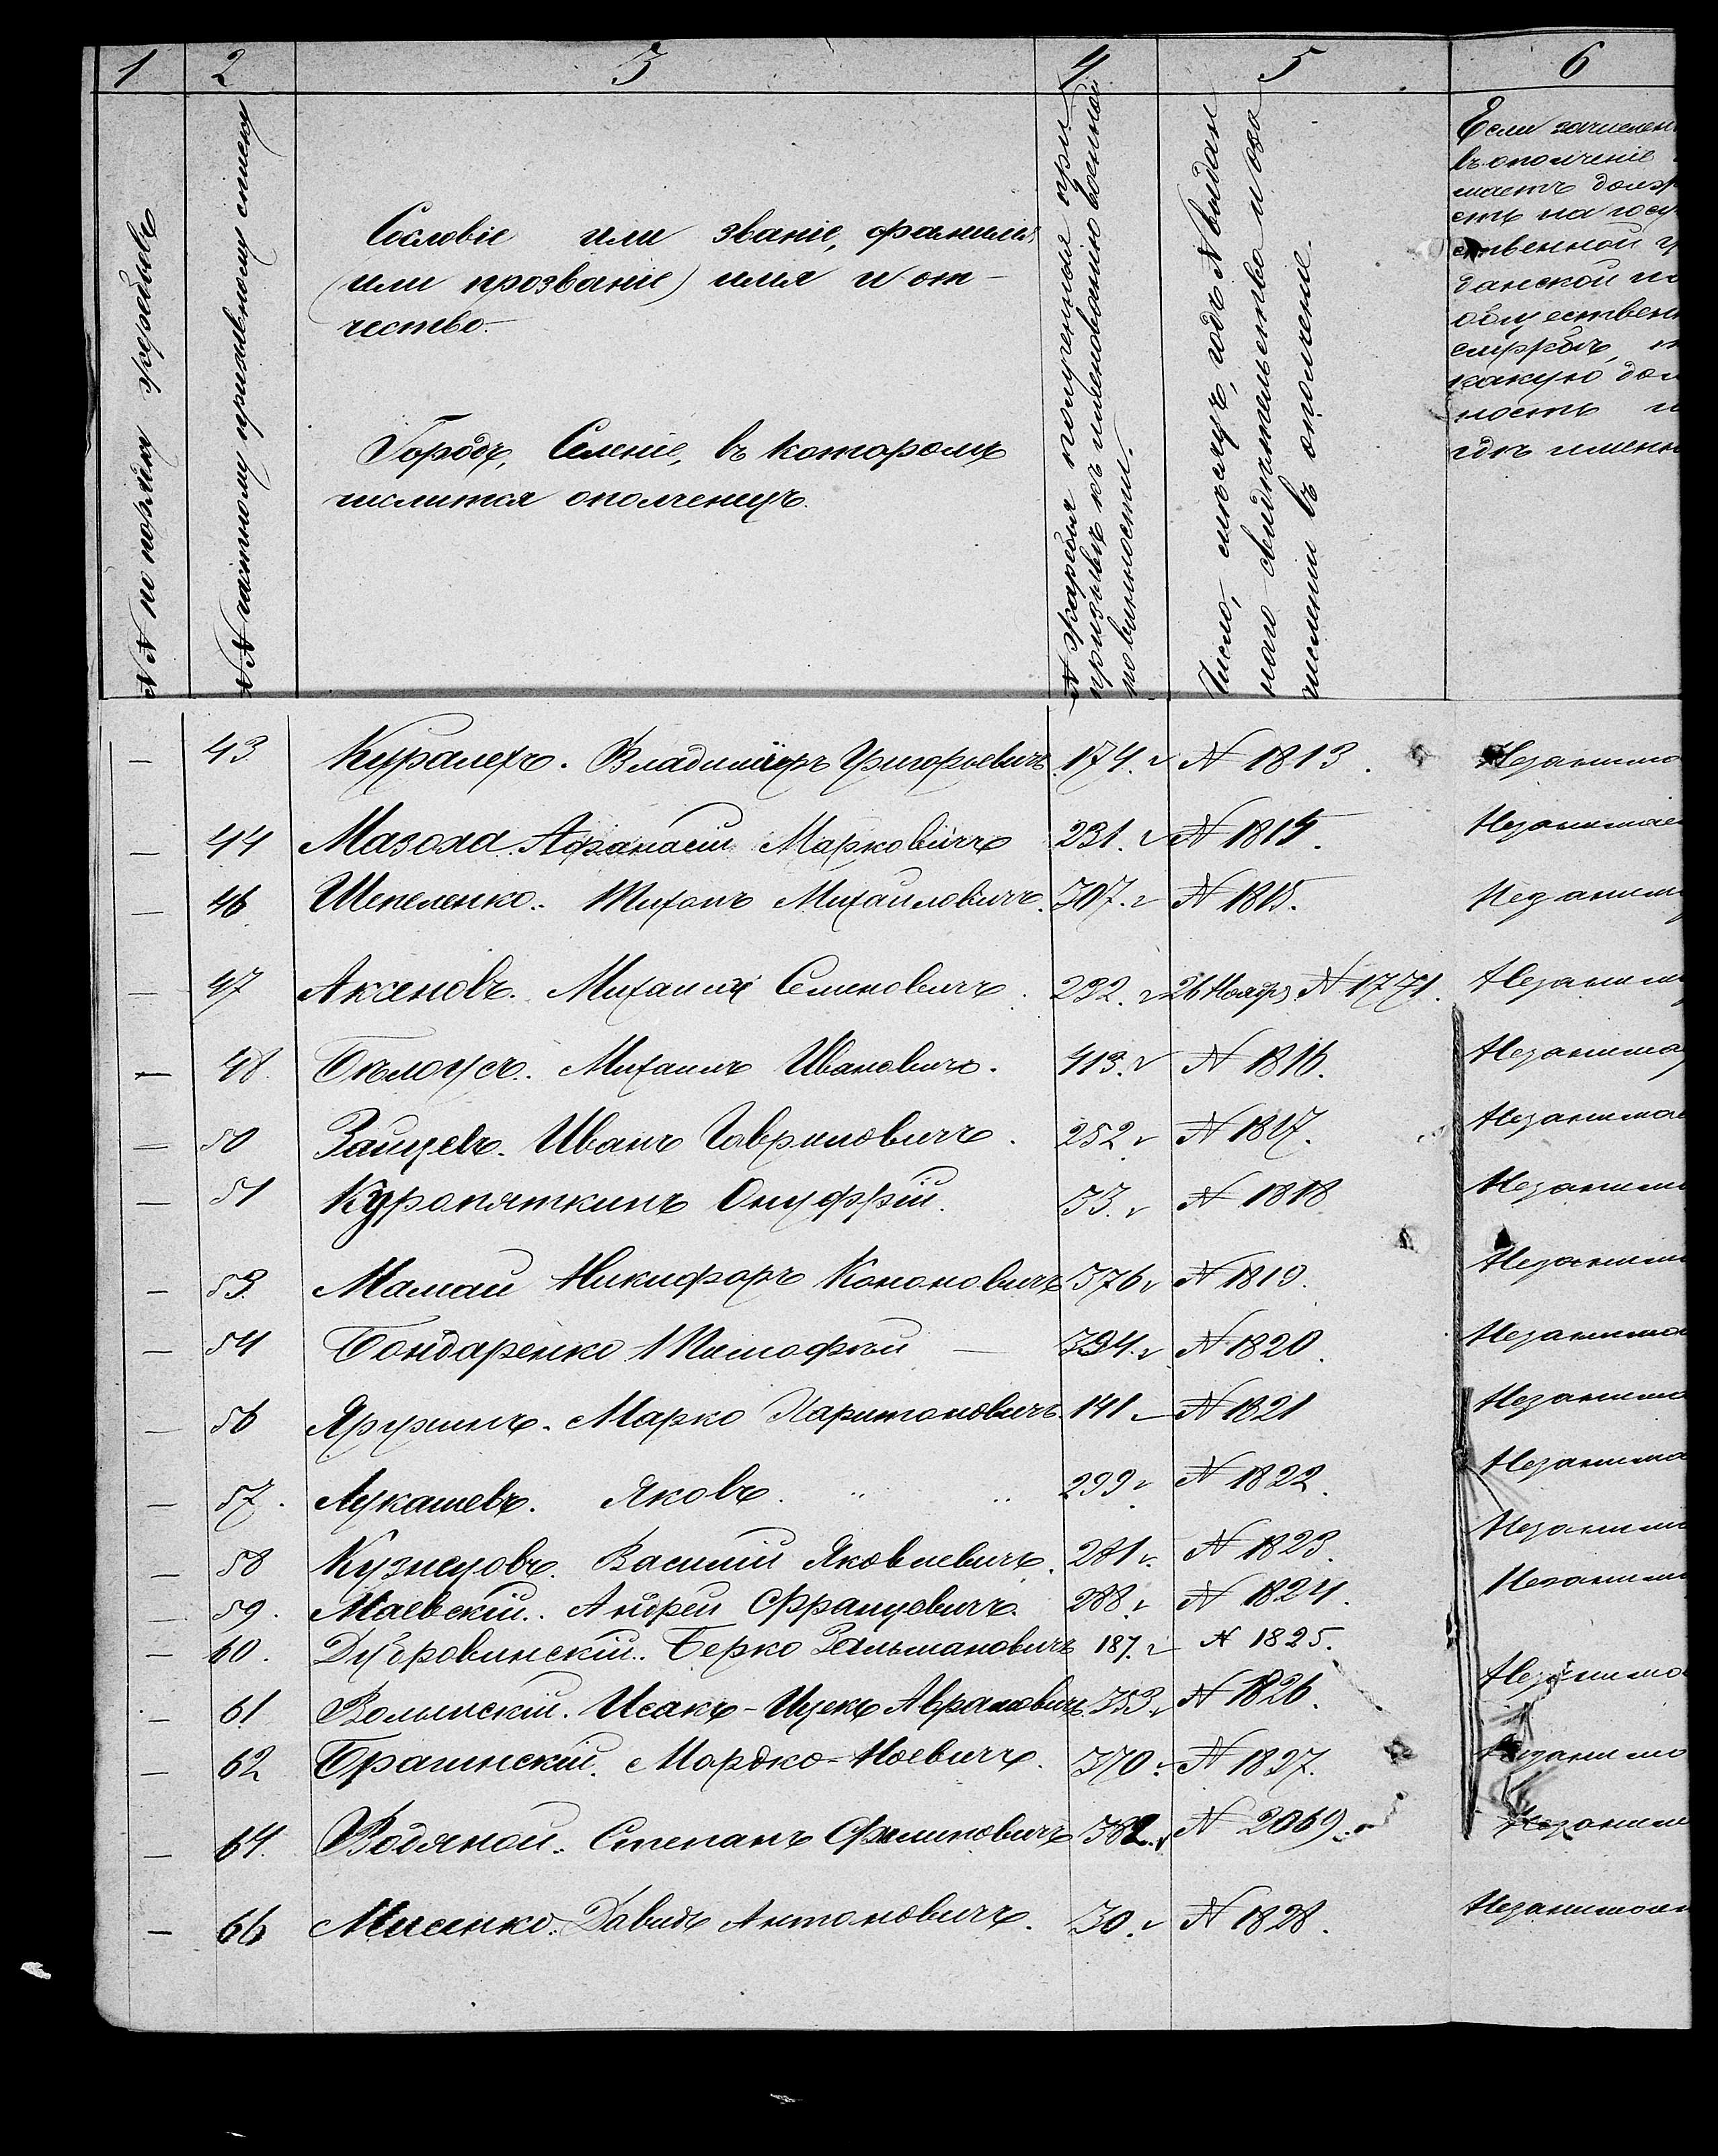 1 2 3 4 5 6
№№ по порядку жеребьевъ
№№ частному призывному списку
Сословіе или званіе, фамилія
(или прозваніе) имя и от-
чество.
Городъ, Селеніе, въ которомъ
числится ополченецъ.
№ жеребья полученныя при
призывѣ къ исполненію воинской
повинности.
Число, мѣсяцъ, годъ и № выдан
наго свидѣтельства о за
числении въ ополчение.
Если зачислен
въ ополченіе
маетъ долж
сть на госу
ственной г
данской
обществен
службѣ,
какую дол
ность и
гдѣ именн
— 43 Куралехъ. Владиміръ Григорьевичъ. 174. № 1813. Незанима
— 44 Мазола. Афанасій Марковичъ 231. № 1814. Незанимае
— 46 Шепеленко. Тихонъ Михайловичъ. 307. № 1815. Незаним
— 47 Аксеновъ. Михаилъ Семеновичъ. 232. 26 Ноябр. № 1771. Незаним
— 48 Бѣлоусъ. Михаилъ Ивановичъ. 413. № 1816. Незанима
— 50 Зайцевъ. Иванъ Гавриловичъ. 252. № 1817. Незанимае
— 51 Куропяткинъ Онуфрій. 33. № 1818 Незаним
— 53. Мамай Никифоръ Кононовичъ 376 № 1819. Незаним
— 54 Бондаренко Тимофѣй — 394. № 1820. Незанима
— 56 Яруринъ. Марко Харитоновичъ. 141 № 1821 Незанима
— 57. Лукашевъ. Яковъ. " " 299 № 1822. Незанима
— 58 Кузнецовъ. Василій Яковлевичъ. 281 № 1823. Незаним
— 59. Маевскій. Андрей Францевичъ. 288. № 1824. Незаним
— 60. Дубровинскій. Берко Зельмановичъ 187. № 1825.
— 61 Волынскій. Исакъ-Ицекъ Абрамовичъ. 353. № 1826. Незанима
— 62 Брагинскій. Мордко-Ноевичъ. 370. № 1827. Незанима
— 64. Водяной. Степанъ Филиповичъ 382. № 2069. Незаним
— 66 Мисенко. Давидъ Антоновичъ. 30. № 1828. Незанимае